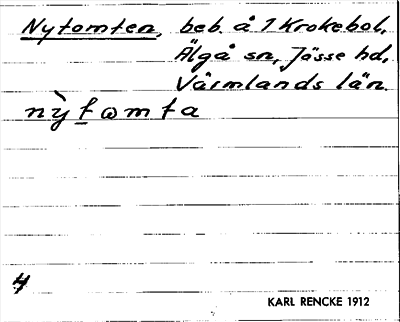 Nytomten, beb. å 1 Krokebol,
Älgå sn, Jösse hd,
Värmlands län.
nỳtωmta
4
KARL RENCKE 1912